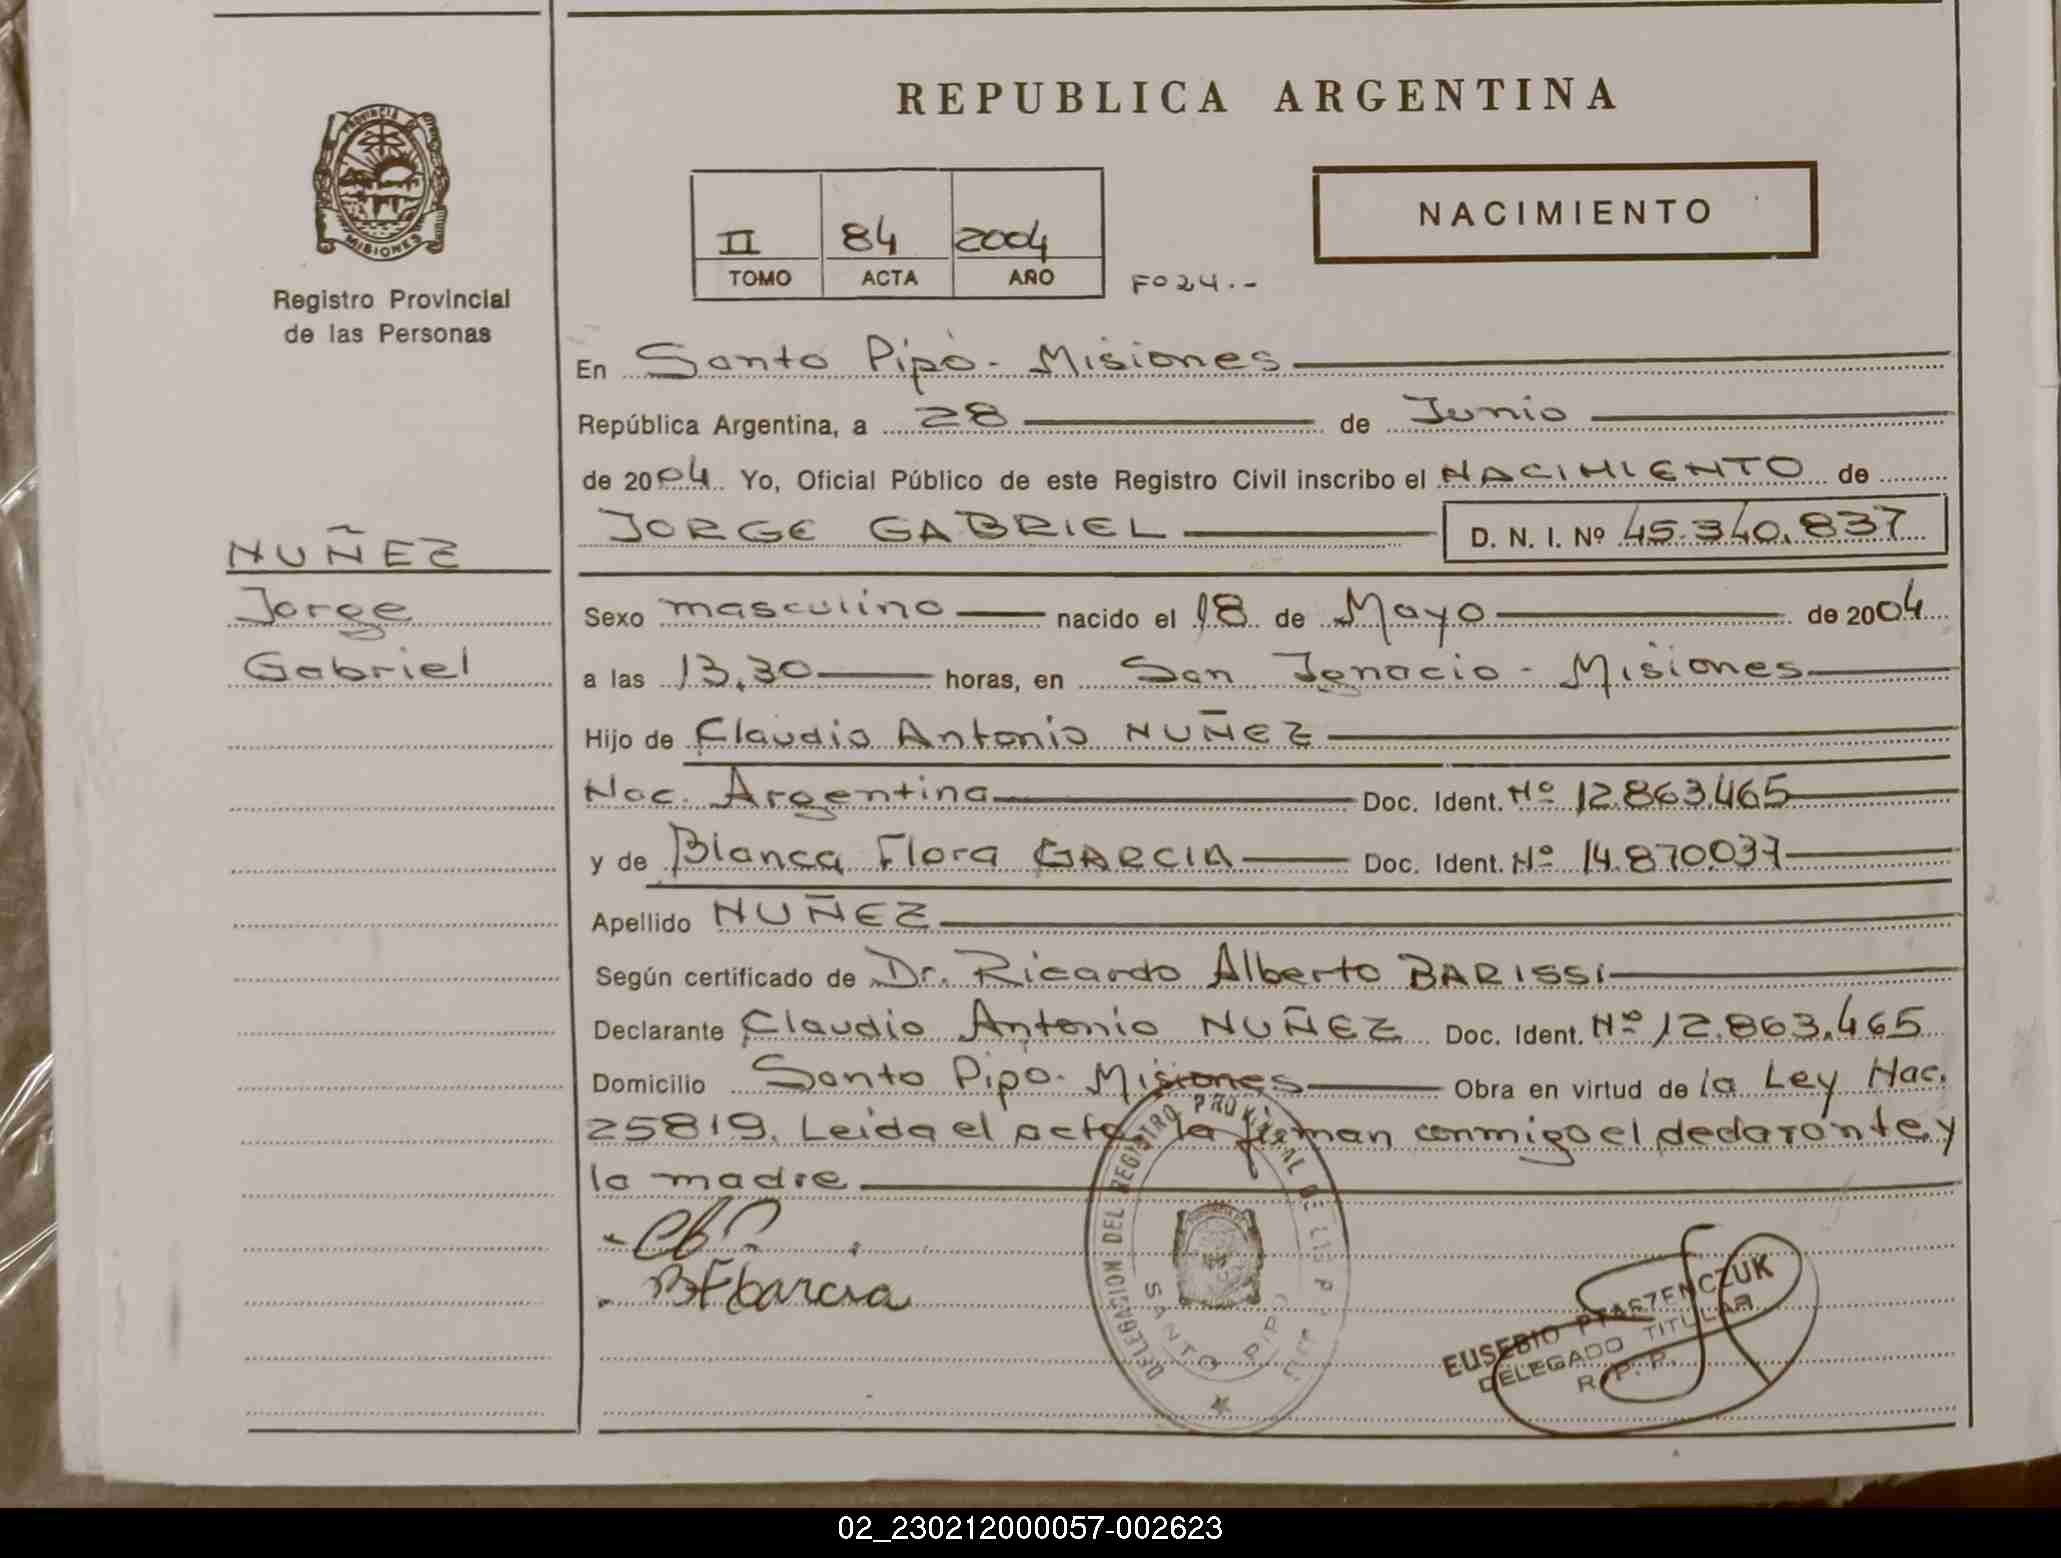 REPUBLICA ARGENTINA
PROVINCIA DE
MISIONES
Registro Provincial
de las Personas
NACIMIENTO
II 84 2004
TOMO ACTA AÑO
Fº 24.-
En Santo Pipó - Misiones
República Argentina, a 28 de Junio
de 2004 Yo, Oficial Público de este Registro Civil inscribo el NACIMIENTO de
JORGE GABRIEL D. N. I. Nº 45.340.837
NUÑEZ
Jorge
Gabriel
Sexo masculino nacido el 18 de Mayo de 2004
a las 13.30 horas, en San Ignacio - Misiones
Hijo de Claudio Antonio NUÑEZ
Nac. Argentina Doc. Ident. Nº 12.863.465
y de Blanca Flora GARCIA Doc. Ident. Nº 14.870.037
Apellido NUÑEZ
Según certificado de Dr. Ricardo Alberto BARISSI
Declarante Claudio Antonio NUÑEZ Doc. Ident. Nº 12.863.465
Domicilio Santo Pipó - Misiones Obra en virtud de la Ley Nac.
25819. Leida el acta, la firman conmigo el declarante y
la madre
BFGarcia
DELEGACION DEL REGISTRO PROVINCIAL DE LAS
SANTO PIPO
EUSEBIO
DELEGADO TITULAR
R. P. P.
02_230212000057-002623